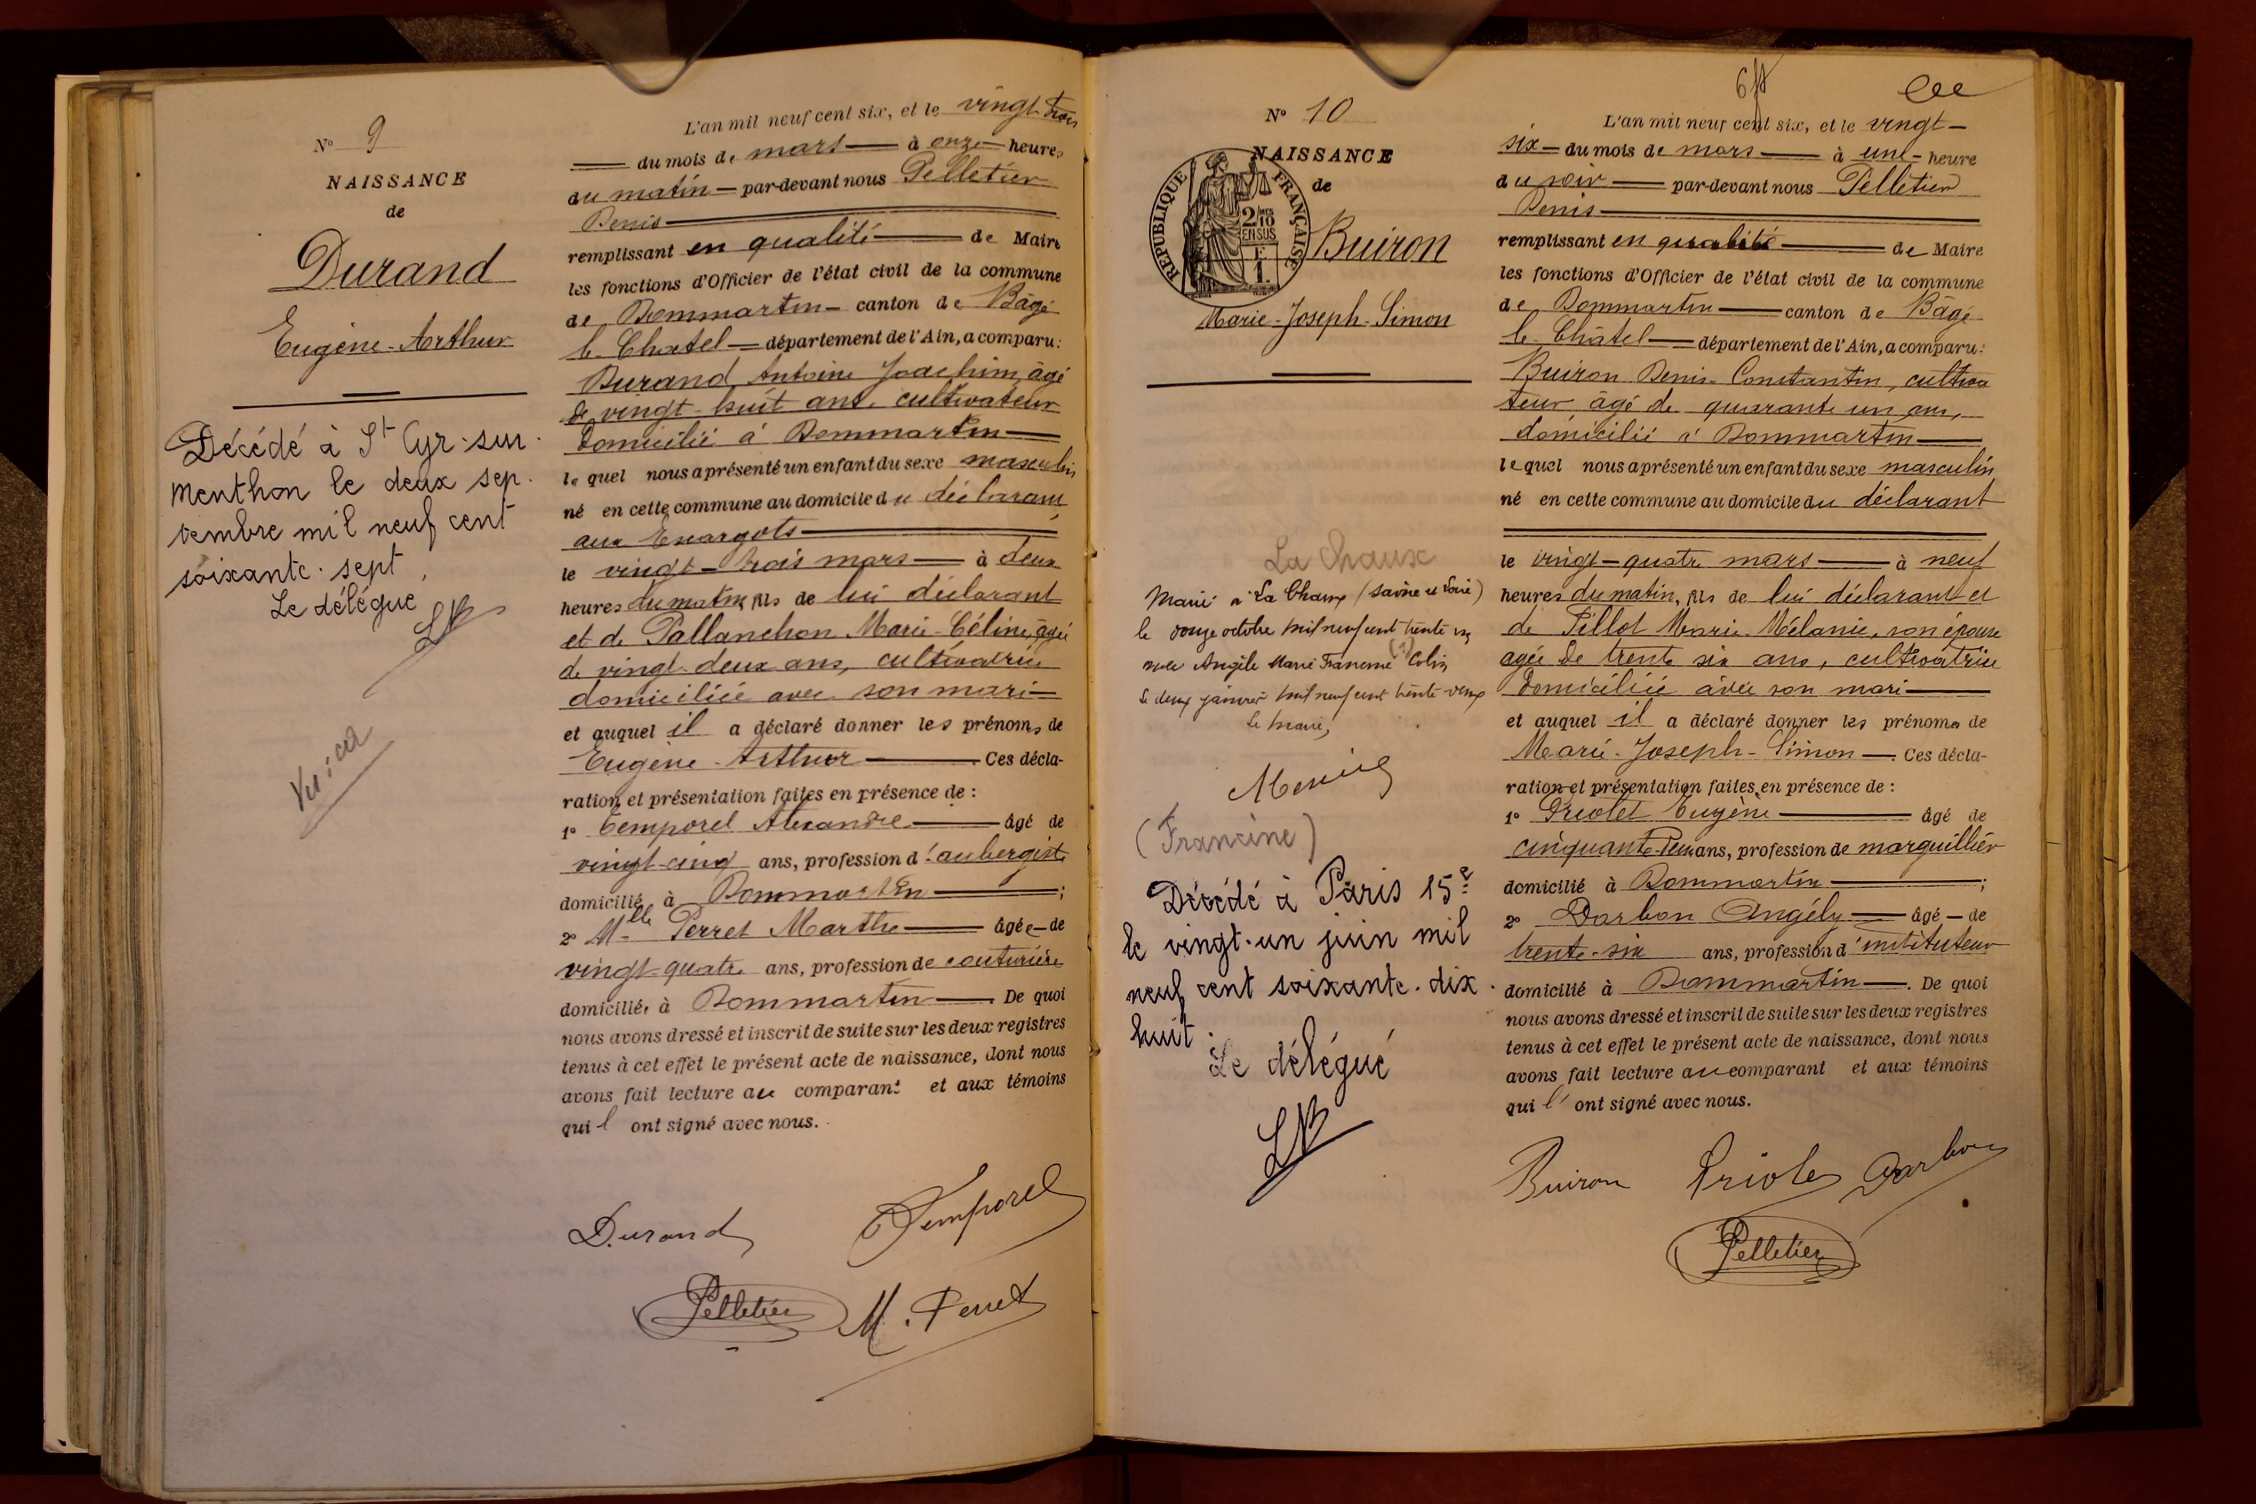 N° 9
NAISSANCE
de
Durand
Eugène-Arthur
Décédé à St Cyr-sur-
Menthon le deux sep-
tembre mil neuf cent
soixante-sept.
Le délégué
L'an mil neuf cent six, et le vingt trois
du mois de mars à onze heures
du matin par-devant nous Pelletier
Denis
remplissant en qualité de Maire
les fonctions d'Officier de l'état civil de la commune
de Dommartin canton de Bâgé
le Châtel département de l'Ain, a comparu:
Durand Antoine Joachim, âgé
de vingt-huit ans, cultivateur
domicilié à Dommartin
lequel nous a présenté un enfant du sexe masculin
né en cette commune au domicile du déclarant
aux Escargots
le vingt-trois mars à deux
heures du matin, fils de lui déclarant
et de Pallanchon Marie-Céline, âgée
de vingt-deux ans, cultivatrice
domiciliée avec son mari
et auquel il a déclaré donner les prénoms de
Eugène-Arthur Ces décla-
ration et présentation faites en présence de :
1° Temporel Alexandre âgé de
vingt-cinq ans, profession d'aubergiste
domicilié à Dommartin ;
2° Mlle Perret Marthe âgée de
vingt-quatre ans, profession de couturière
domiciliée à Dommartin . De quoi
nous avons dressé et inscrit de suite sur les deux registres
tenus à cet effet le présent acte de naissance, dont nous
avons fait lecture au comparant et aux témoins
qui l' ont signé avec nous.
Durand Temporel
Pelletier M. Perret
N° 10
NAISSANCE
de
RÉPUBLIQUE FRANÇAISE
2/10
EN SUS
Buiron
Marie-Joseph-Simon
La Chaux
Marié à La Chaux (Saône et Loire)
le douze octobre mil neuf cent trente un
avec Angèle Marie Francine (?) Colin
Le deux janvier mil neuf cent trente-deux
Le Maire,
(Francine)
Décédé à Paris 15e
le vingt-un juin mil
neuf cent soixante-dix-
huit.
Le délégué
L'an mil neuf cent six, et le vingt-
six du mois de mars à une heure
du soir par-devant nous Pelletier
Denis
remplissant en qualité de Maire
les fonctions d'Officier de l'état civil de la commune
de Dommartin canton de Bâgé
le Châtel département de l'Ain, a comparu:
Buiron Denis-Constantin, cultiva
teur, âgé de quarante un ans,
domicilié à Dommartin
lequel nous a présenté un enfant du sexe masculin
né en cette commune au domicile du déclarant
le vingt-quatre mars à neuf
heures du matin, fils de lui déclarant et
de Pillot Marie-Mélanie, son épouse
agée de trente six ans, cultivatrice
domiciliée avec son mari
et auquel il a déclaré donner les prénoms de
Marie-Joseph-Simon . Ces décla-
ration et présentation faites en présence de :
1° Priolet Eugène âgé de
cinquante-deux ans, profession de marguillier
domicilié à Dommartin ;
2° Darbon Angély âgé de
trente-six ans, profession d'instituteur
domicilié à Dommartin . De quoi
nous avons dressé et inscrit de suite sur les deux registres
tenus à cet effet le présent acte de naissance, dont nous
avons fait lecture au comparant et aux témoins
qui l' ont signé avec nous.
Buiron Priolet Darbon
Pelletier